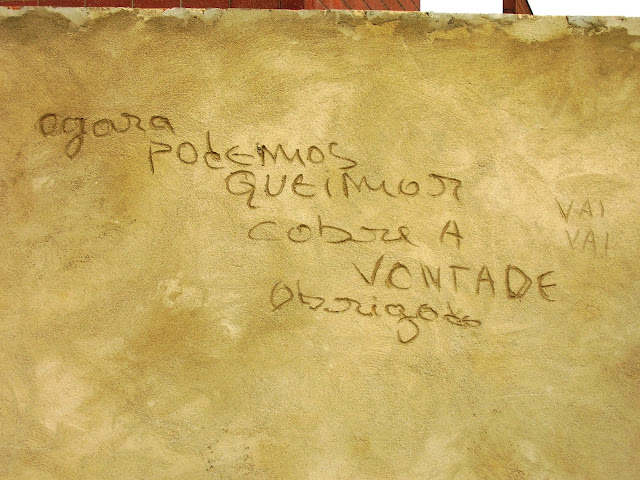 agora
PODEMOS
QUEIMOR
cobre A
VONTADE
Obrigado
VAI
VAI